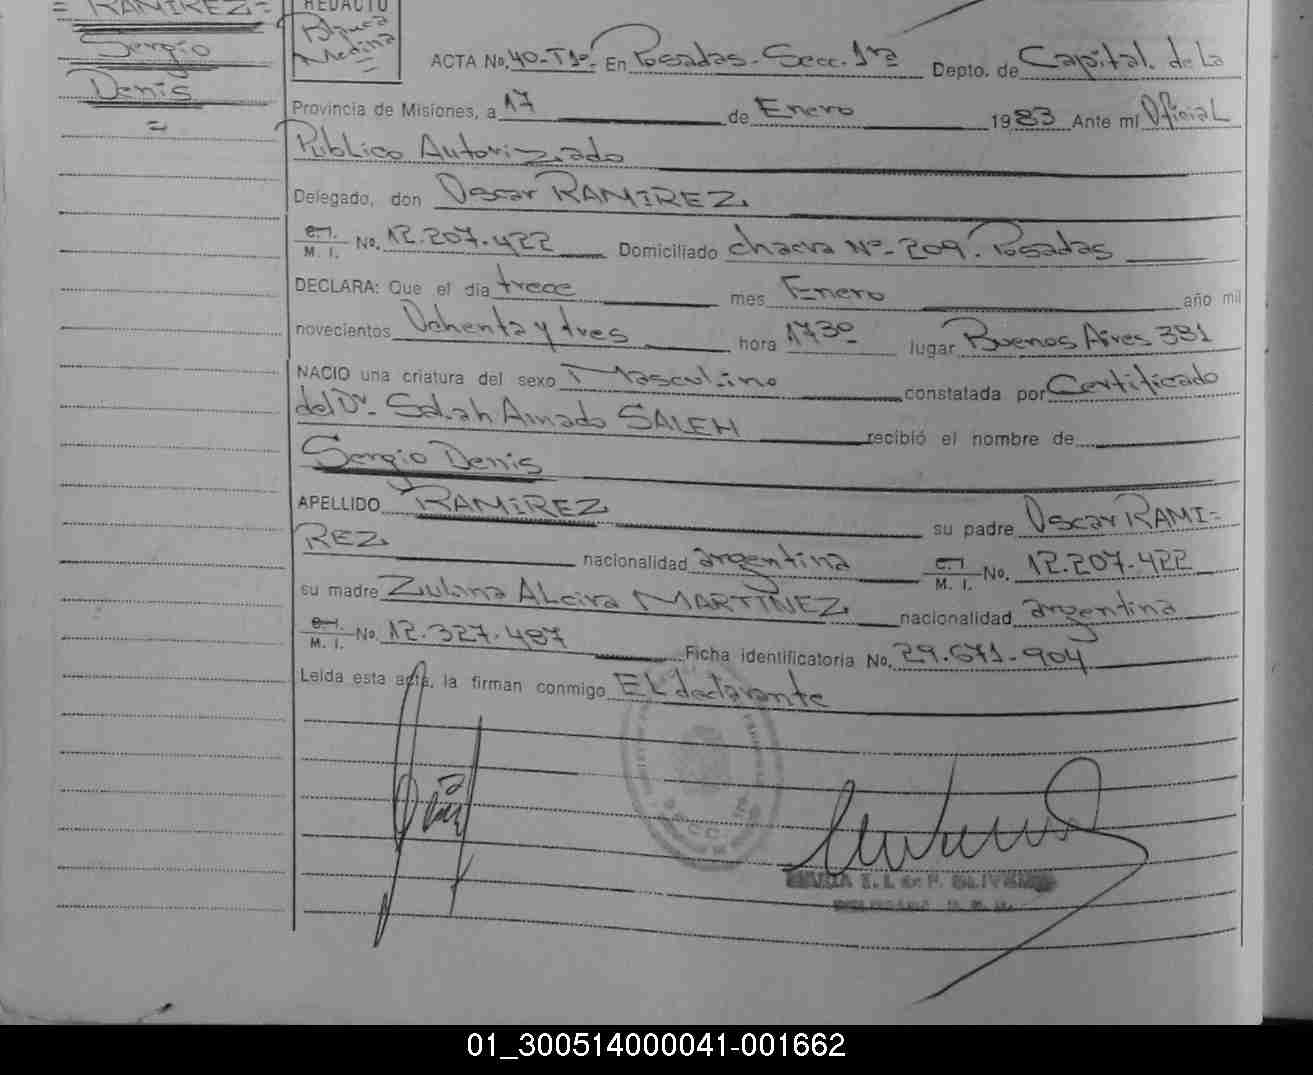 = RAMIREZ =
Sergio
Denis
=
REDACTO
Medina
ACTA No. 40-T1º- En Posadas- Secc. 1ra Depto. de Capital. de La
Provincia de Misiones, a 17 de Enero 1983 Ante mí Oficial
Público Autorizado
Delegado, don Oscar RAMIREZ
M. I. No. 12.207.422 Domiciliado chacra Nº- 209. Posadas
DECLARA: Que el día trece mes Enero año mil
novecientos Ochenta y tres hora 1730 lugar Buenos Aires 381
NACIO una criatura del sexo Masculino constatada por Certificado
del Dr. Salah Amado SALEH recibió el nombre de
Sergio Denis
APELLIDO RAMIREZ su padre Oscar RAMI=
REZ nacionalidad argentina M. I. No. 12.207.422
su madre Zulma Alcira MARTINEZ nacionalidad argentina
M. I. No. 12.327.487 Ficha identificatoria No. 29.671-904
Leída esta acta, la firman conmigo El declarante
01_300514000041-001662